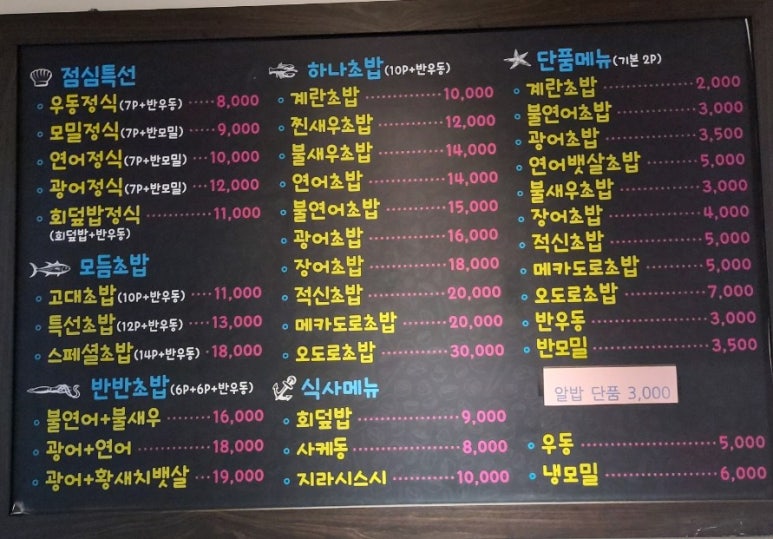 점심특선
우동정식(7P+반우동) ····8,000
모밀정식(7P+반모밀) ····9,000
연어정식(7P+반모밀) ···10,000
광어정식(7P+반모밀) ···12,000
회덮밥정식 ············11,000
(회덮밥+반우동)
모듬초밥
고대초밥(10P+반우동) ···11,000
특선초밥(12P+반우동) ···13,000
스페셜초밥(14P+반우동) ·18,000
반반초밥(6P+6P+반우동)
불연어+불새우 ········16,000
광어+연어 ············18,000
광어+황새치뱃살 ···19,000
하나초밥(10P+반우동)
계란초밥 ············10,000
찐새우초밥 ···········12,000
불새우초밥 ···········14,000
연어초밥 ············14,000
불연어초밥 ···········15,000
광어초밥 ············16,000
장어초밥 ············18,000
적신초밥 ············20,000
메카도로초밥 ········20,000
오도로초밥 ··········30,000
식사메뉴
회덮밥 ··············9,000
사케동 ··············8,000
지라시스시 ·········10,000
단품메뉴(기본 2P)
계란초밥 ············2,000
불연어초밥 ··········3,000
광어초밥 ············3,500
연어뱃살초밥 ········5,000
불새우초밥 ··········3,000
장어초밥 ············4,000
적신초밥 ············5,000
메카도로초밥 ········5,000
오도로초밥 ··········7,000
반우동 ··············3,000
반모밀 ··············3,500
알밥 단품 3,000
우동 ················5,000
냉모밀 ··············6,000